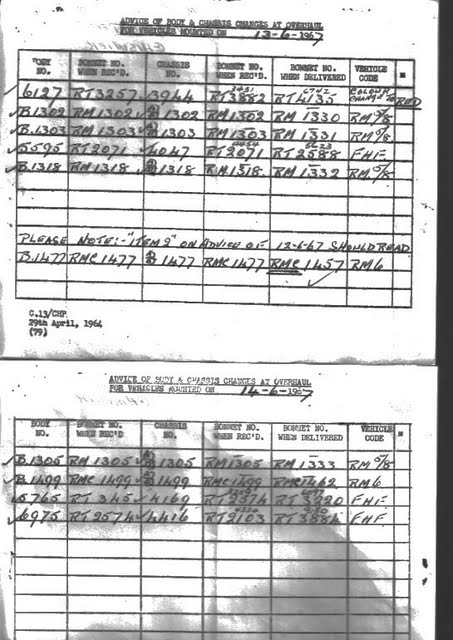 ADVICE OF BODY & CHASSIS CHANGES AT OVERHAUL
FOR VEHICLES MOUNTED ON 13-6-1967
BODY NO. BONNET NO. WHEN REC'D. CHASSIS NO. BONNET NO. WHEN REC'D. BONNET NO. WHEN DELIVERED VEHICLE CODE
6127 RT3257 3944 RT3882 RT4135 COLOUR CHANGE TO RED
B.1302 RM1302 B1302 RM1302 RM1330 RM5/8
B.1303 RM1303 B1303 RM1303 RM1331 RM5/8
5595 RT2071 4047 RT2071 RT2588 FHF
B.1318 RM1318 B1318 RM1318 RM1332 RM5/8
PLEASE NOTE:- "ITEM 9" ON ADVICE OF 12-6-67 SHOULD READ
B.1477 RMC1477 B1477 RMC1477 RMC1457 RM6
C.13/CHP
29th April, 1964
(79)
ADVICE OF BODY & CHASSIS CHANGES AT OVERHAUL
FOR VEHICLES MOUNTED ON 14-6-1967
BODY NO. BONNET NO. WHEN REC'D CHASSIS NO. BONNET NO. WHEN REC'D. BONNET NO. WHEN DELIVERED VEHICLE CODE
B.1305 RM1305 B1305 RM1305 RM1333 RM5/8
B.1499 RMC1499 B1499 RMC1499 RMC1462 RM6
5765 RT345 4169 RT2574 RT3220 FHF
6975 RT2574 4416 RT2103 RT3584 FHF